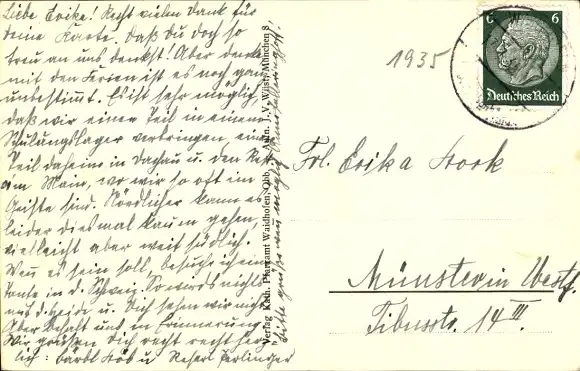 Liebe Erika! Recht vielen Dank für
deine Karte, daß du doch so
treu an uns denkst! Aber
mit den Ferien ist es noch ganz
unbestimmt. Es ist sehr möglich,
daß wir einen Teil in einem
Schulungslager verbringen, ein
Teil daheim in Dachau u. den Rest
am Main, wo wir so oft im
Geiste sind. Nördlicher kann es
leider diesmal kaum gehen,
vielleicht aber weit südlich.
Wenn es sein soll, besuche ich eine
Tante in d. Schweiz. So wirds nichts
aus d. Heide u. Dich sehen wir nicht.
Aber behalt uns in Erinnerung.
Wir grüßen Dich recht recht herz
lich: Bärbl u. Reserl
Verlag Kath. Pfarramt Waidhofen, Obb.
München 8
1935
6 6
Deutsches Reich
Frl. Erika Stork
Münster in Westf.
Tibusstr. 14 III